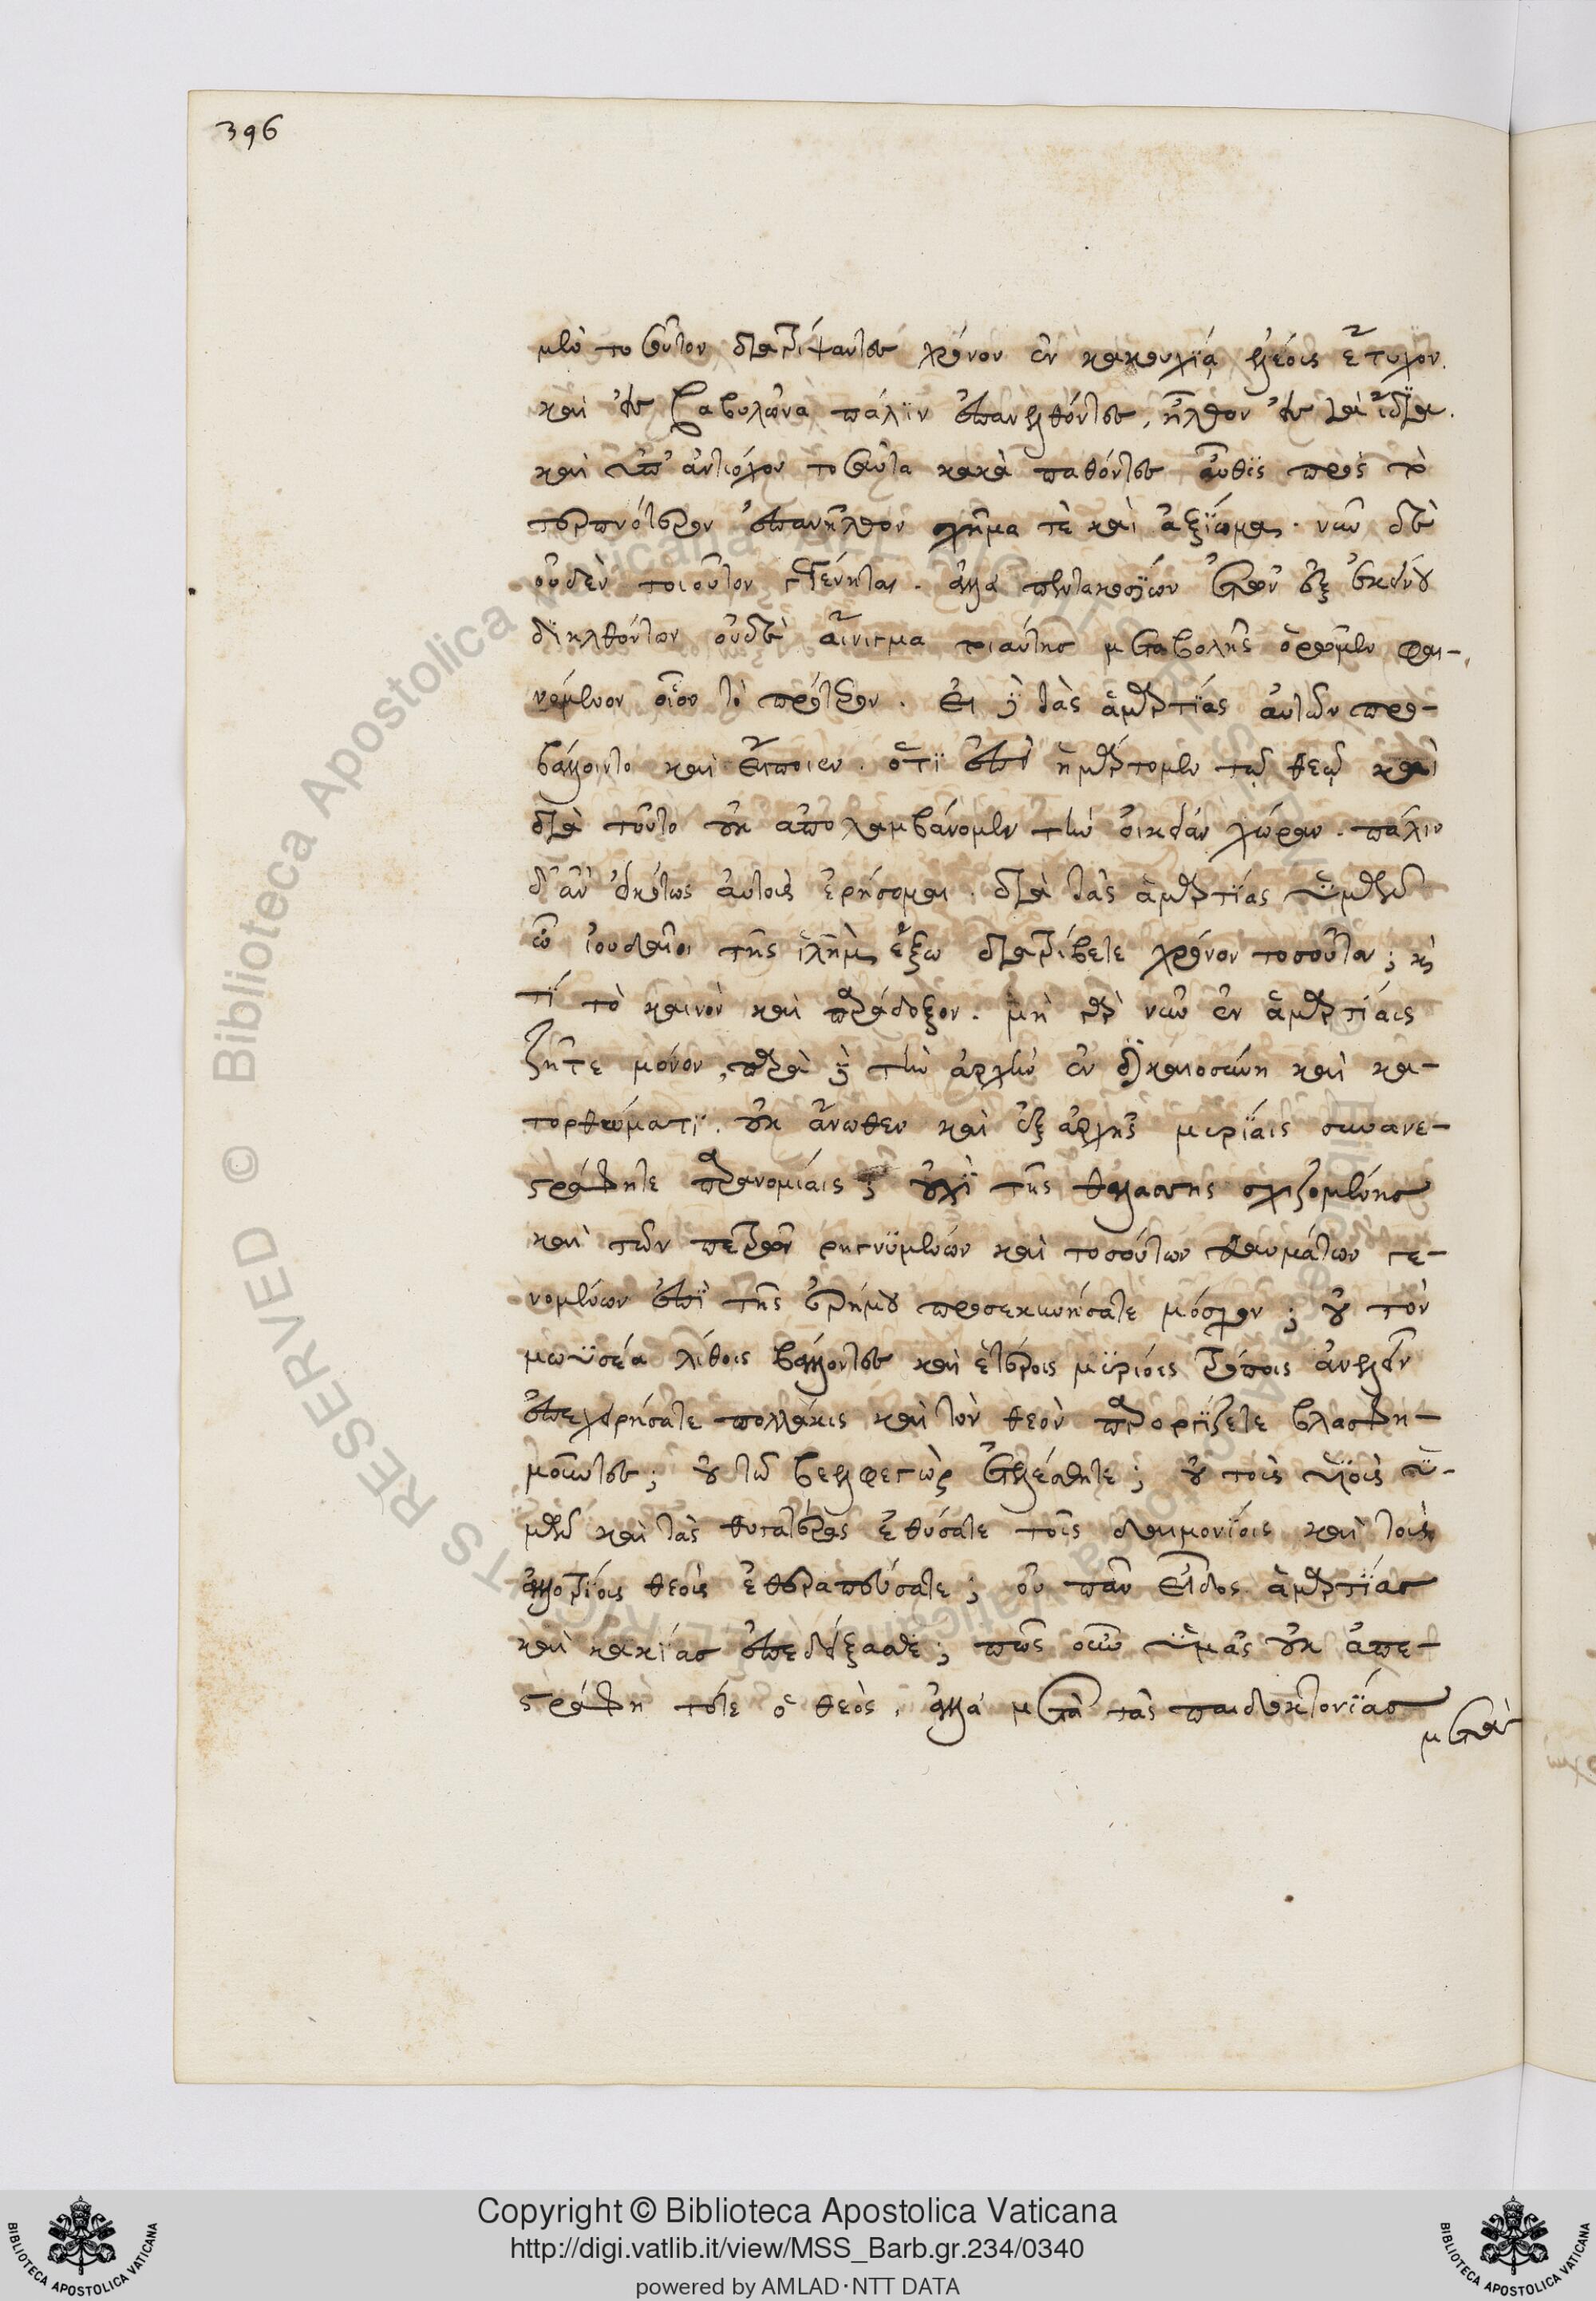 396
μὲν τοσοῦτον διατρίψαντες χρόνον ἐν κακουχία ἐλέοις ἔτυχον.
καὶ εἰς βαβυλῶνα πάλϊν ἐπανελθόντες, ἦλθον εἰς τὰ ἴδϊα.
καὶ ὑπ' ἀντιόχου τοσαῦτα κακὰ παθόντες αὖθϊς πρὸς τὸ
τερπνότερον ἐπανῆλθον σχῆμα τὲ καὶ ἀξΐωμα. νῦν δὲ
οὐδὲν τοιοῦτον γεγένηται. ἀλλὰ πεντακοσΐων ἐτῶν ἐξ ἐκείνου
διελθόντων οὐδὲ αἴνιγμα τοιαύτης μεταβολῆς ὁρῶμεν φαι-
νόμενον οἷον τὸ πρότερον. εἰ δὲ τὰς ἁμαρτΐας αὐτῶν προ-
βάλλοιντο καὶ εἴποιεν. ὅτϊ ἐπεὶ ἡμάρτομεν τῷ θεῷ καὶ
διὰ τοῦτο οὐκ ἀπολαμβάνομεν τὴν οἰκείαν χώραν. πάλιν
δ' ἂν εἰκότως αὐτοῖς ἐρήσομαι. διὰ τὰς ἁμαρτΐας ὑμῶν
ὦ ἰουδαῖοι τῆς ἱλημ ἔξω διατρίβετε χρόνον τοσοῦτον; καὶ
τΐ τὸ καινὸν καὶ παράδοξον. μὴ γὰρ νῦν ἐν ἁμαρτΐαις
ζῆτε μόνον, παρὰ δὲ τὴν ἀρχὴν ἐν δικαιοσύνη καὶ κα-
τορθώματϊ. οὐκ ἄνωθεν καὶ ἐξ ἀρχῆς μυρΐαις συνανε-
στράφητε παρανομίαις; οὐχῒ τῆς θαλάσσης σχιζομένης
καὶ τῶν πετρῶν ῥηγνϋμένων καὶ τοσούτων θαυμάτων γε-
νομένων ἐπῒ τῆς ἐρήμου προσεκυνήσατε μόσχον; οὐ τὸν
μωϋσέα λίθοις βάλλοντες καὶ ἑτέροις μϋρίοις τρόποις ἀνελεῖν
ἐπεχειρήσατε πολλάκις καὶ τὸν θεὸν παροργΐζετε βλασφη-
μοῦντες; οὐ τῷ βεελφεγὼρ ἐτελέσθητε; οὐ τοὺς υἱοὺς ὑ-
μῶν καὶ τὰς θυγατέρας ἐθύσατε τοῖς δαιμονΐοις καὶ τοῖς
ἀλλοτρΐοις θεοῖς ἐθεραπεύσατε; οὐ πᾶν εἶδος ἁμαρτΐας
καὶ κακΐας ἐπεδείξασθε; πῶς οὖν ὑμᾶς οὐκ ἀπε-
στράφη τότε ὁ θεὸς, ἀλλὰ μετὰ τὰς παιδοκτονΐας
μετὰ
Copyright © Biblioteca Apostolica Vaticana
http://digi.vatlib.it/view/MSS_Barb.gr.234/0340
powered by AMLAD·NTT DATA